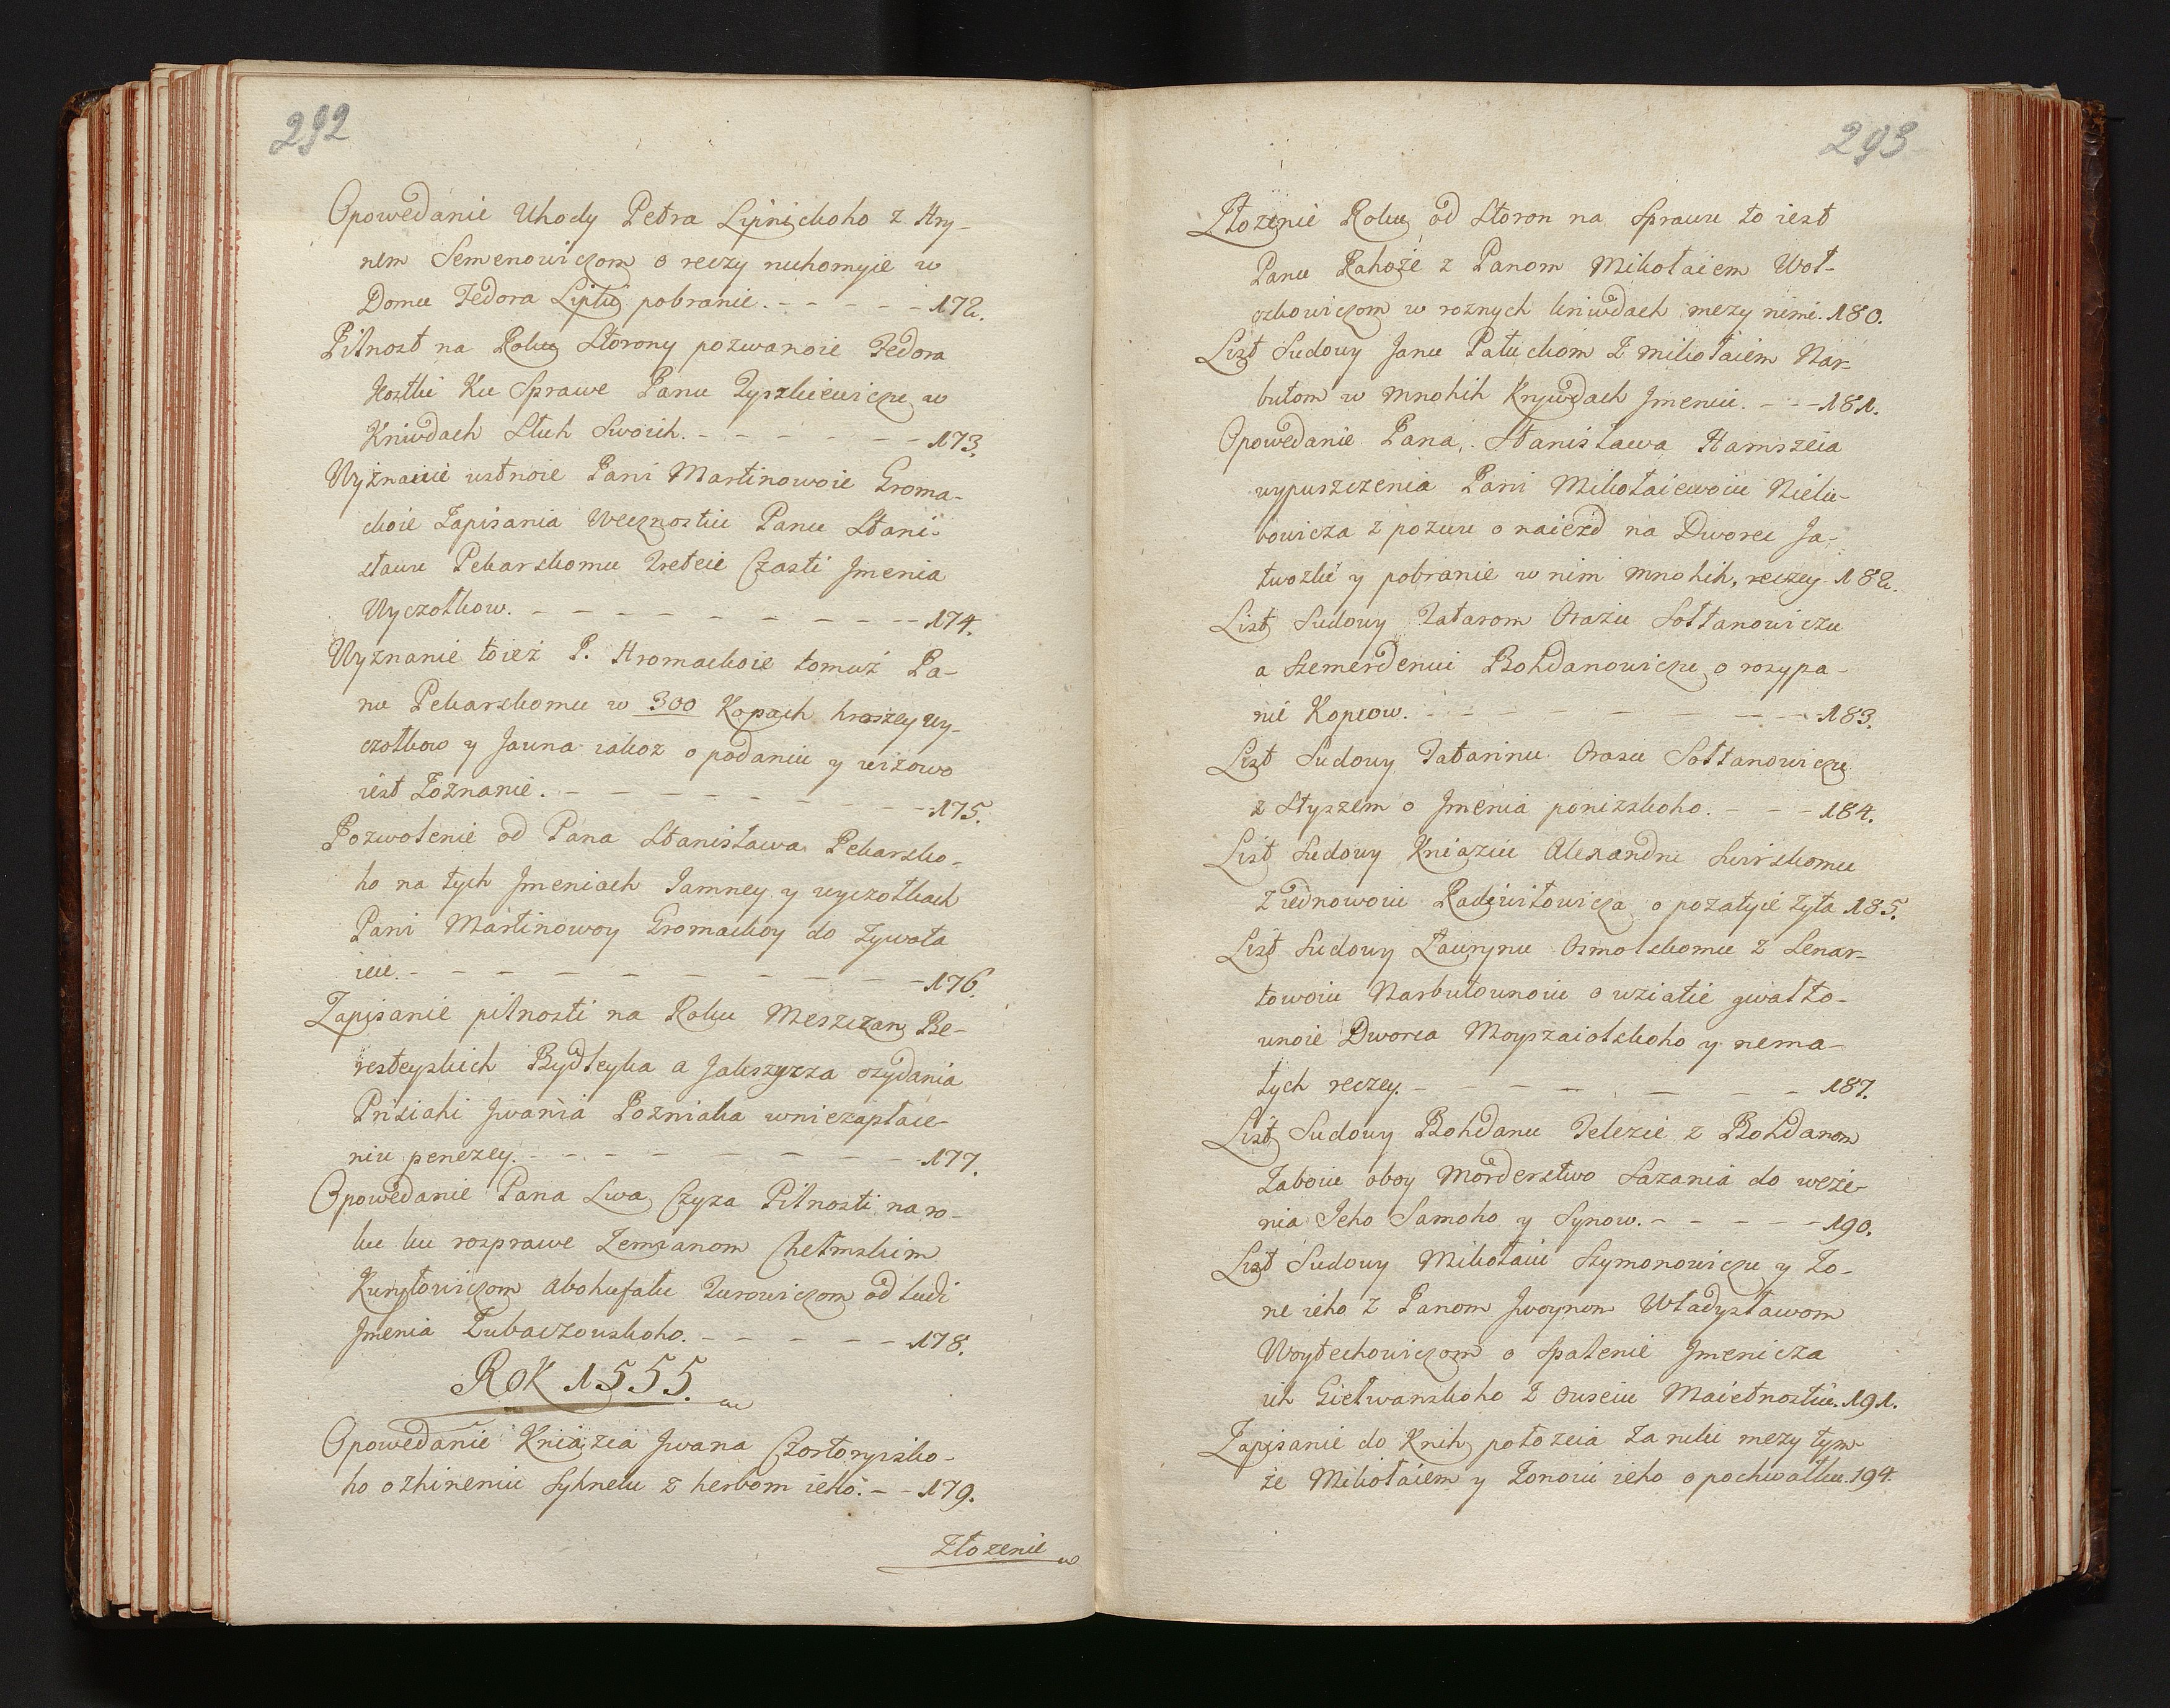 292
Opowedanie Uhody Petra Lipnickoho z Hry-
nem Semenowiczom o reczy ruchomyie w
Domu Fedora Lipki pobranie. - - - - - 172.
Pilnost na Roku Storony pozwanoie Fedora
Hostki Ku Sprawe Panu Tyszkiewiczu w
Kriwdach Sluh Swoich. - - - - - - 173.
Wyznanie ustnoie Pani Martinowoie Groma-
ckoie Zapisania Wecznostiu Panu Stani-
sławu Pekarskomu Treteie Czasti Jmenia
Wyczołkow. - - - - - - - - - 174.
Wyznanie toież P. Hromackoie tomuż Pa-
nu Pekarskomu w 300 Kopach hroszey Wy-
czołkow y Jamna iakoz o podaniu y wizowo
iest Zoznanie. - - - - - - - - - 175.
Pozwolenie od Pana Stanisława Pekarsko-
ho na tych Jmeniach Jamney y wyczołkach
Pani Martinowoy Gromackoy do żywota
ieie. - - - - - - - - - 176.
Zapisanie pilnosti na Roku Meszczan Be-
resteyskich Bydleyka a Jakszycza ozydania
Prisiahi Jwana Pozniaka wniezapłace-
niu penezey. - - - - - - - - 177.
Opowedanie Pana Lwa Czyza Pilnosti na ro-
ku ku rosprawe Zemianom Chełmskim
Kuryłowiczom Abohufału Turowiczom od ludi
Jmenia Lubaczowskoho. - - - - - 178.
Rok 1555.
Opowedanie Kniazia Jwana Czortoryisko-
ho ozhineniu Syhnetu z herbom ieho. - - 179.
Złozenie
293
Złozenie Roku od Storon na Sprawu to iest
Panu Rahoże z Panom Mikołaiem Woł-
czkowiczom w roznych kriwdach mezy nimi. 180.
List Sudowy Janu Patuckom Z Mikołaiem Nar-
butom w mnohih Krywdach Jmeniu. - - - 181.
Opowedanie Pana Stanisława Hamszeia
wypuszczenia Pani Mikołaiewoiu Nielu-
bowicza z pozwu o naiezd na Dworec Ja-
twozki y pobranie w nim mnohih reczey - 182.
List Sudowy Tatarom Orażu Sołtanowiczu
a Szemerdenui Bohdanowiczu o rozypa-
nie Kopcow. - - - - - - - - 183.
List Sudowy Tatarinu Orasu Sołtanowiczu
z Słyszem o Jmenia ponizskoho. - - - 184.
List Sudowy Kniaziu Alexandru Swirskomu
Z iednowoiu Radiwiłowicza o pozatyie żyta 185.
List Sudowy Ławrynu Osmolskomu z Lenar-
towoiu Narbutownoiu o wziatie gwałto-
wnoie Dworca Moyszaiolskoho y nema-
łych reczey. - - - - - - - 187.
List Sudowy Bohdanu Telezie z Bohdanom
Zaboiu oboy Morderstwo Sazania do weze-
nia Jeho Samoho y Synow. - - - - - 190.
List Sudowy Mikołaiu Szymonowiczu y żo-
ne ieho z Panom Jwoynom Władysławom
Woytechowiczom o Spalenie Jmenicza
ich Gietwanskoho Z Ouseiu Maietnostiu. 191.
Zapisanie do Knih położeia Zaruki mezy tym
że Mikołaiem y żonoiu ieho o pochwałku. 194.